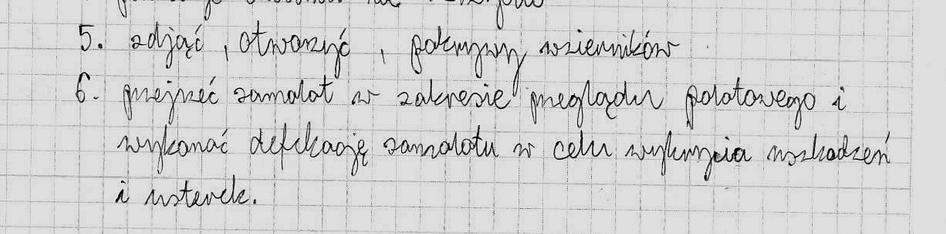 5. zdjąć, otworzyć, pokrywy wzierników
6. przejrzeć samolot w zakresie przeglądu polotowego i
wykonać defekację samolotu w celu wykrycia uszkodzeń
i usterek.